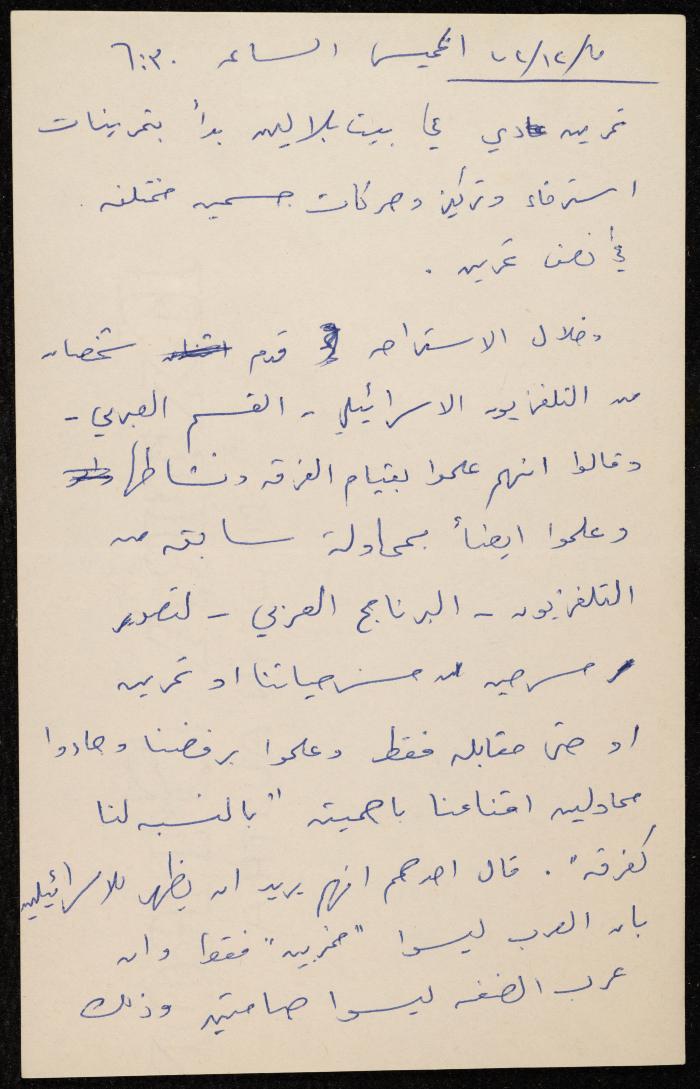 الخميس الساعه ٦:٣٠
تمرين عادي في بيت بلالين بدأ بتمرينات
استرخاء وتركيز وحركات جسميه مختلفه
في نصف تمرين .
وخلال الاستراحه قدم شخصان
من التلفزيون الاسرائيلي - القسم العبري -
وقالوا انهم علموا بقيام الفرقه ونشاطها
وعلموا ايضاً بمحاولة سابقه من
التلفزيون - البرنامج العربي - لتصوير
مسرحيه من مسرحياتنا او تمرين
او حتى مقابله فقط وعلموا برفضنا وجاءوا
محاولين اقناعنا باهميته "بالنسبه لنا
كفرقه" . قال احدهم انهم يريد ان يظهر للاسرائيليين
بان العرب ليسوا "مخربين" فقط وان
عرب الضفه ليسوا صامتين وذلك